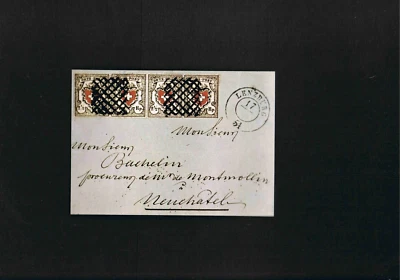 LENZBURG
17
51
Monsieur
Monsieur
Bachelin
procureur de Mr de Montmollin
à
Neuchâtel